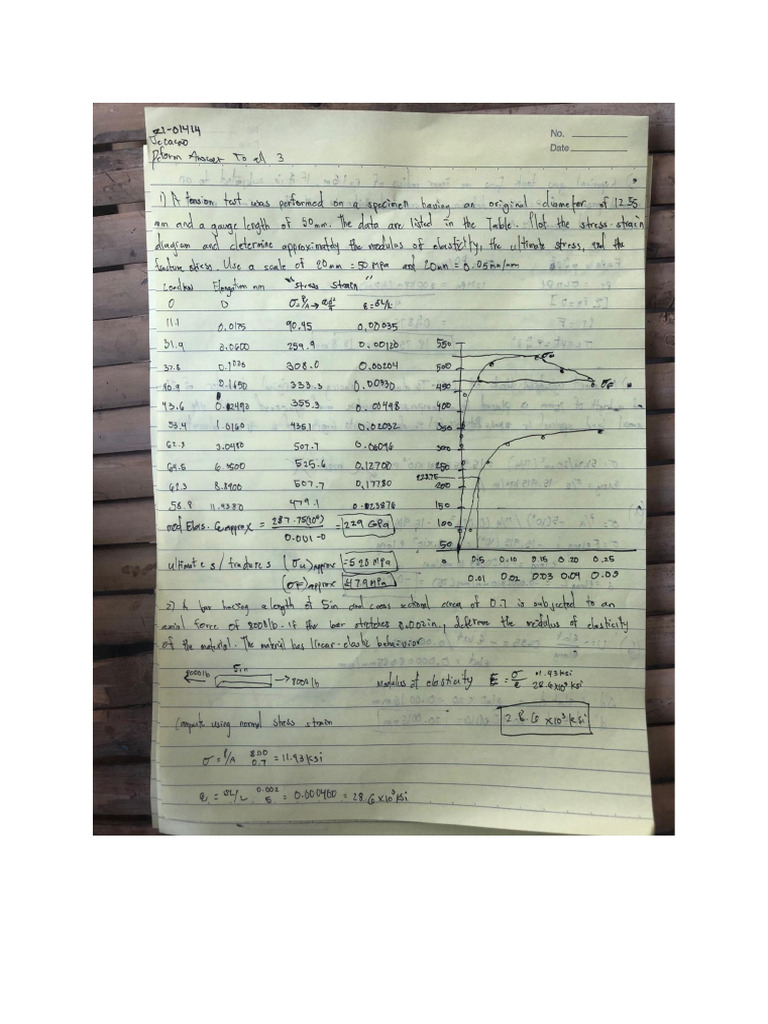 21-01414
No.
Date
Perform Answer To all 3
1) A tension test was performed on a specimen having an original diameter of 12.55
mm and a gauge length of 50mm. The data are listed in the Table. Plot the stress-strain
diagram and determine approximately the modulus of elasticity, the ultimate stress, and the
fracture stress. Use a scale of 20mm = 50 MPa and 20mm = 0.05 mm/mm
Load kN Elongation mm Stress strain
0 0 σ=P/A → e=SL/L
11.1 0.0175 90.45 0.00035
31.9 0.0600 259.9 0.00120
37.8 0.1020 308.0 0.00204
40.9 0.1650 333.3 0.00330
43.6 0.02490 355.3 0.00498
53.4 1.0160 4351 0.02032
62.3 3.0480 507.7 0.06096
64.5 6.3500 525.6 0.12700
62.3 8.8900 507.7 0.17780
58.8 11.9380 479.1 0.023876
550
500
450
400
350
300
250
223.75
200
150
100
50
0 0.5 0.10 0.15 0.20 0.25
0.01 0.02 0.03 0.04 0.05
σF
mod Elas. E approx = 287.75(10⁶) / 0.001-0 = 229 GPa
ultimate s/fractures (σu)approx = 528 MPa
(σF)approx 479MPa
2) A bar having a length of 5in and cross sectional area of 0.7 is subjected to an
axial force of 8008lb. If the bar stretches 0.002in., determe the modulus of elasticity
of the material. The material has linear-elastic behavior
8000lb 5in 8000lb
Modulus of elasticity E = σ/e 11.43ksi 28.6x10³ ksi
28.6 x10³ ksi
Compute using normal stress strain
σ = P/A 800 / 0.7 = 11.93 ksi
e = SL/L 0.002 / 5 = 0.000400 = 28.6x10³ ksi